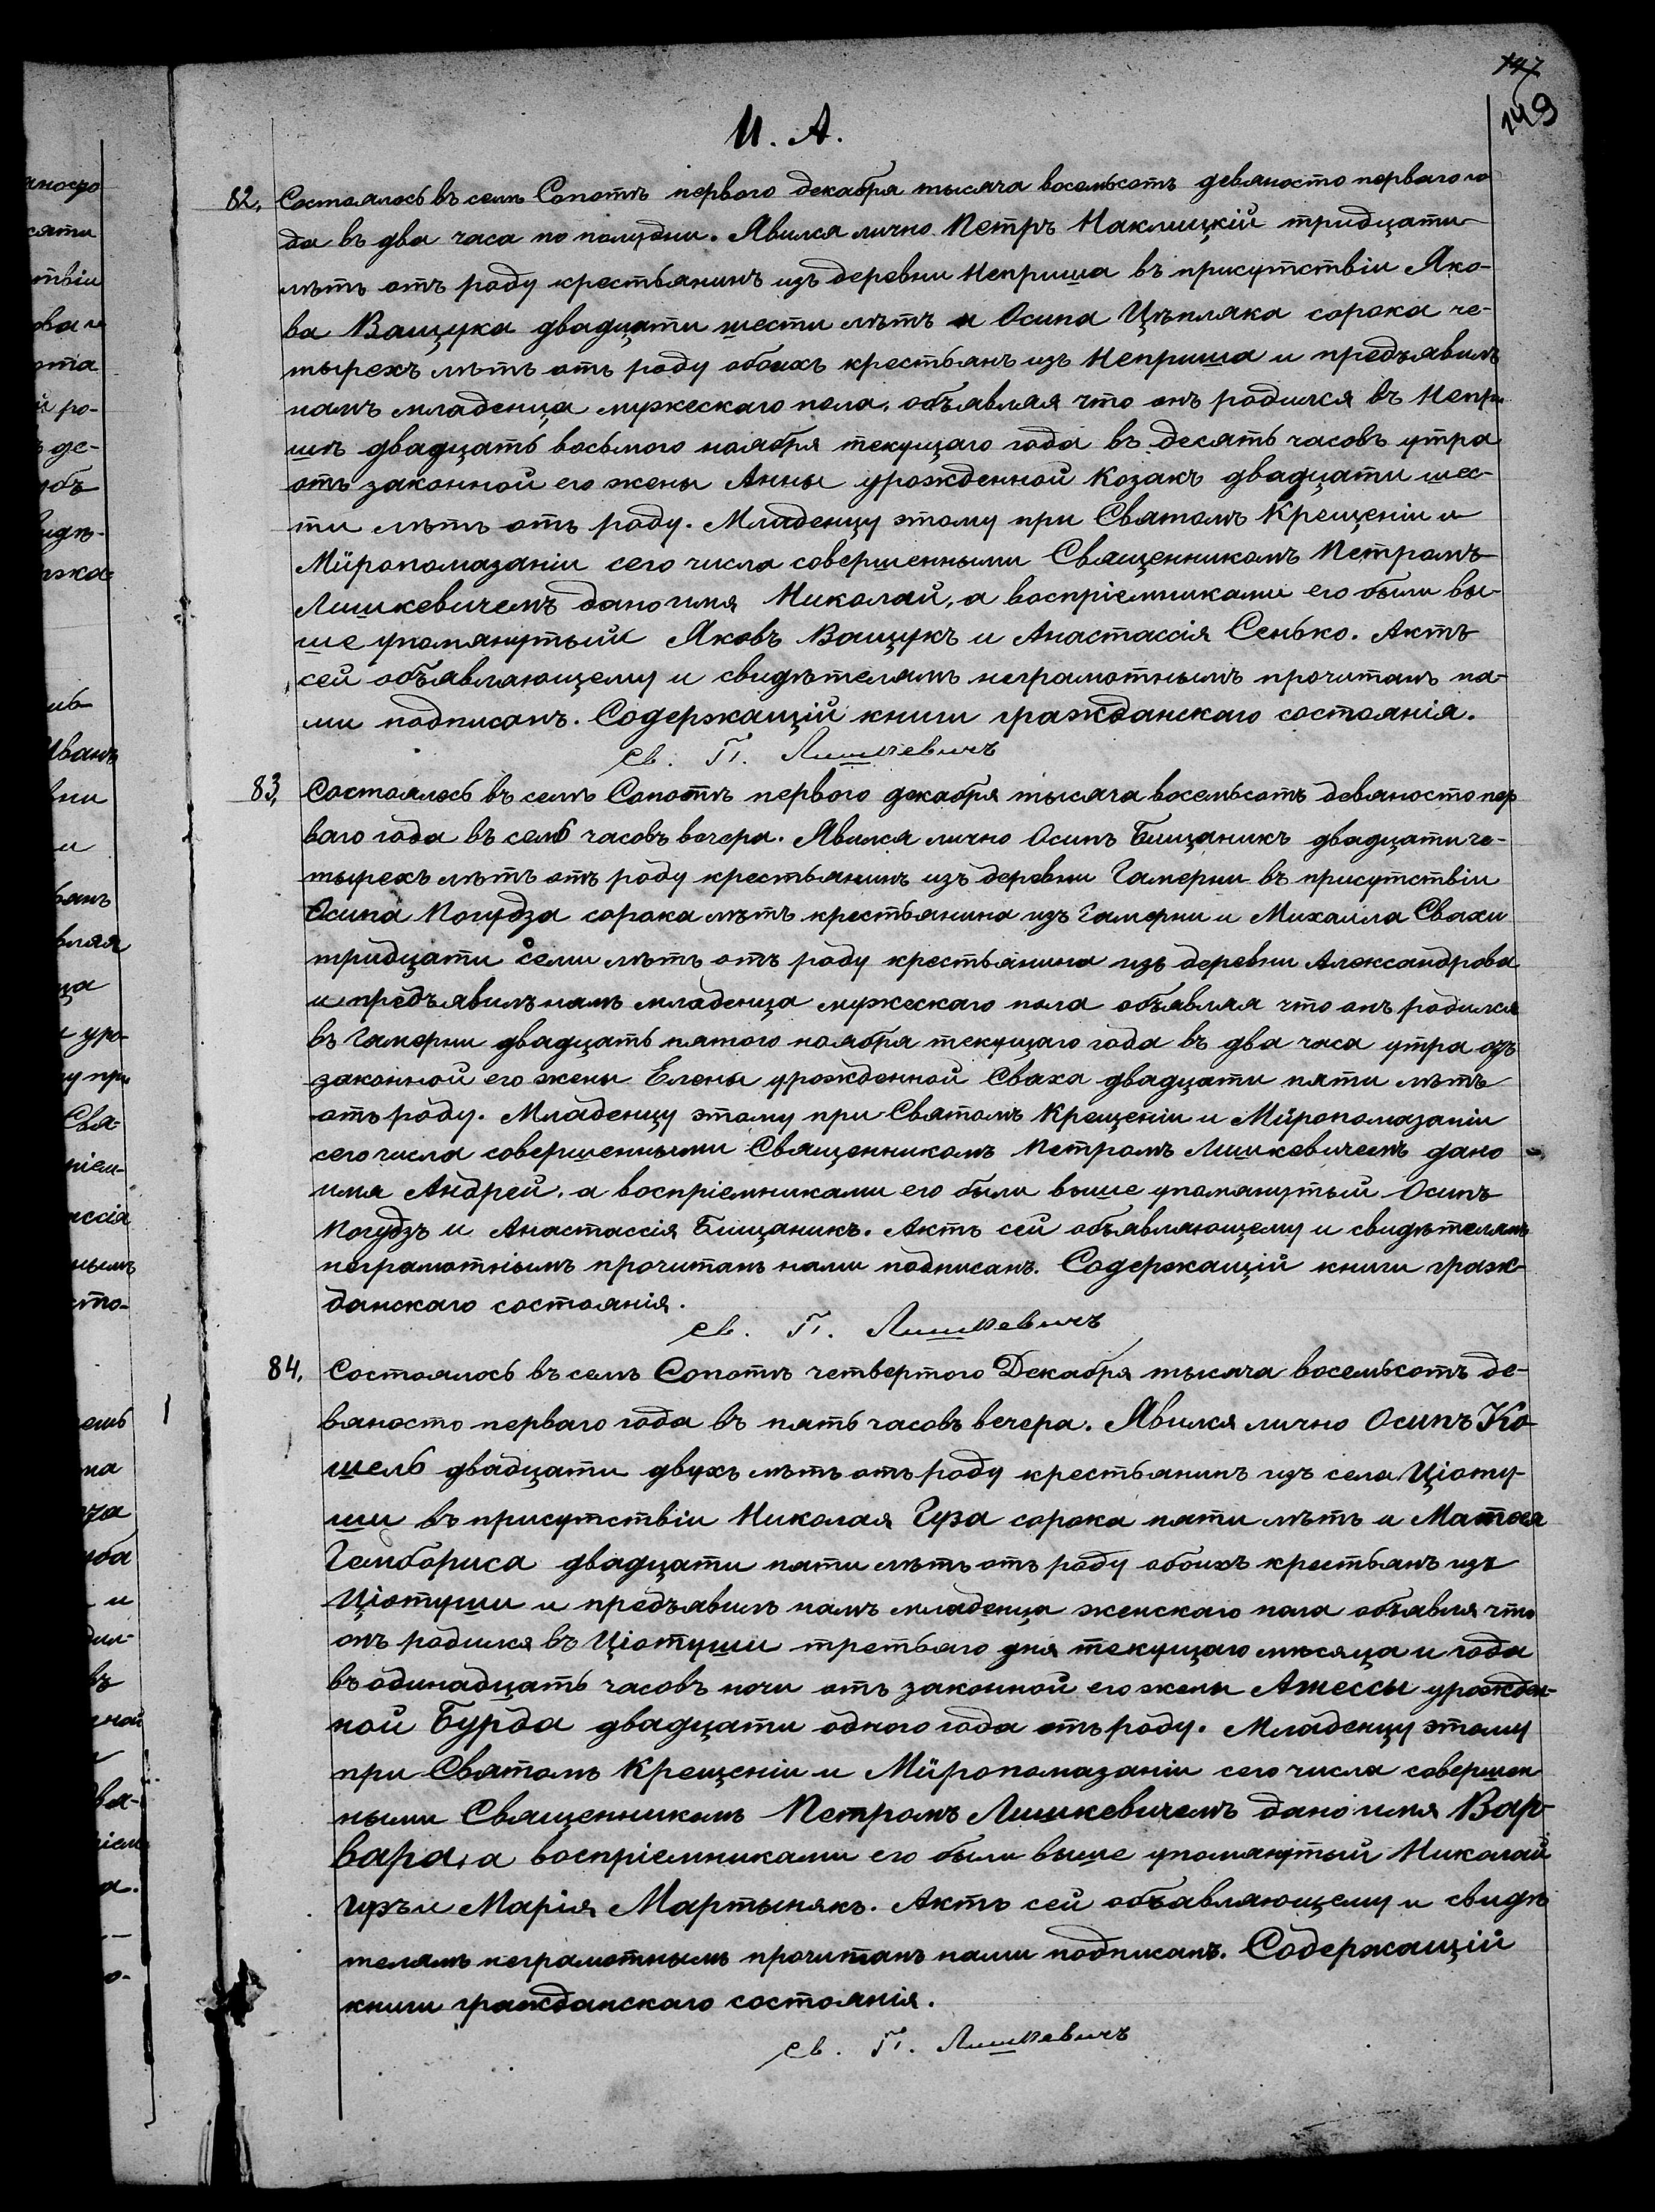 147
149
И. А.
82. Состоялось въ селѣ Сопотѣ первого декабря тысяча восемьсотъ девяносто перваго го-
да въ два часа по полудни. Явился лично Петръ Наклицкій тридцати
лѣтъ отъ роду крестьянинъ изъ деревни Неприша въ присутствіи Яко-
ва Ващука двадцати шести лѣтъ и Осипа Цѣпляка сорока че-
тырехъ лѣтъ отъ роду обоихъ крестьянъ изъ Неприша и предъявилъ
намъ младенца мужескаго пола, объявляя что онъ родился въ Непри-
шѣ двадцать восьмого ноября текущаго года въ десять часовъ утра
отъ законной его жены Анны урожденной Козакъ двадцати шес-
ти лѣтъ отъ роду. Младенцу этому при Святомъ Крещеніи и
Мѵропомазаніи сего числа совершенными Священникомъ Петромъ
Лишкевичемъ дано имя Николай, а воспріемниками его были вы-
ше упомянутый Яковъ Ващукъ и Анастассія Сенько. Актъ
сей объявляющему и свидѣтелямъ неграмотнымъ прочитанъ на-
ми подписанъ. Содержащій книги гражданскаго состоянія.
Св. П. Лишкевичъ
83. Состоялось въ селѣ Сопотѣ первого декабря тысяча восемьсотъ девяносто пер
ваго года въ семь часовъ вечера. Явился лично Осипъ Бищаникъ двадцати че-
тырехъ лѣтъ отъ роду крестьянинъ изъ деревни Гамерни въ присутствіи
Осипа Погудза сорока лѣтъ крестьянина изъ Гамерни и Михаила Свахи
тридцати семи лѣтъ отъ роду крестьянина изъ деревни Александрова
и предъявилъ намъ младенца мужескаго пола объявляя что онъ родился
въ Гамерни двадцать пятого ноября текущаго года въ два часа утра отъ
законной его жены Елены урожденной Сваха двадцати пяти лѣтъ
отъ роду. Младенцу этому при Святомъ Крещеніи и Мѵропомазаніи
сего числа совершенными Священникомъ Петромъ Лишкевичемъ дано
имя Андрей, а воспріемниками его были выше упомянутый Осипъ
Погудзъ и Анастассія Бищаникъ. Актъ сей объявляющему и свидѣтелямъ
неграмотнымъ прочитанъ нами подписанъ. Содержащій книги граж-
данскаго состоянія.
Св. П. Лишкевичъ
84. Состоялось въ селѣ Сопотѣ четвертого Декабря тысяча восемьсотъ де-
вяносто перваго года въ пять часовъ вечера. Явился лично Осипъ Ко-
шель двадцати двухъ лѣтъ отъ роду крестьянинъ изъ села Ціоту-
ши въ присутствіи Николая Гуза сорока пяти лѣтъ и Матѳея
Гембориса двадцати пяти лѣтъ отъ роду обоихъ крестьянъ изъ
Ціотуши и предъявилъ намъ младенца женскаго пола объявля что
онъ родился въ Ціотуши третьяго дня текущаго мѣсяца и года
въ одинадцать часовъ ночи отъ законной его жены Агнессы урожден-
ной Бурда двадцати одного года отъ роду. Младенцу этому
при Святомъ Крещеніи и Мѵропомазаніи сего числа совершен
ными Священникомъ Петромъ Лишкевичемъ дано имя Вар-
вара, а воспріемниками его были выше упомянутый Николай
Гузъ и Марія Мартынякъ. Актъ сей объявляющему и свидѣ
телямъ неграмотнымъ прочитанъ нами подписанъ. Содержащій
книги гражданскаго состоянія.
Св. П. Лишкевичъ